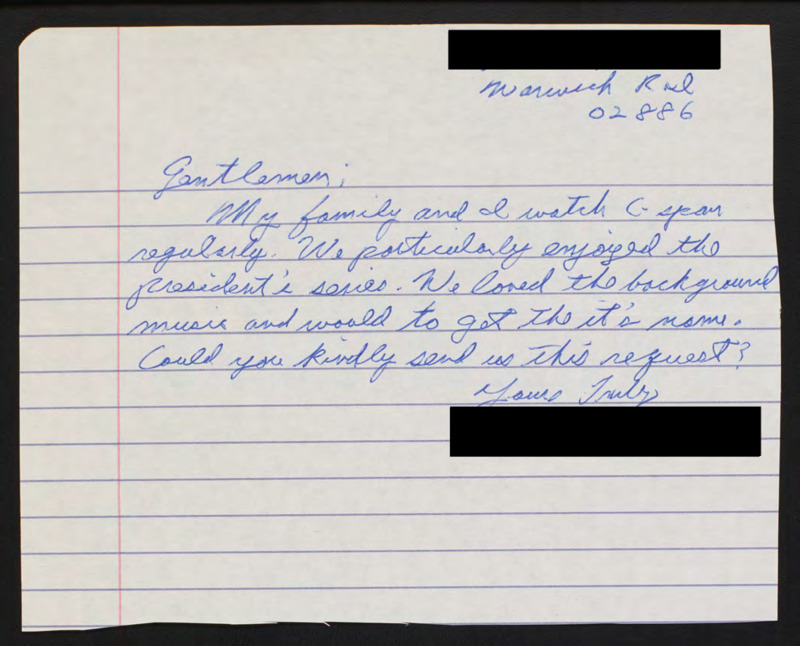 Warwick R.I.
02886
Gentlemen;
My family and I watch C-span
regularly. We particularly enjoyed the
president's series. We loved the background
music and would to get the it's name.
Could you kindly send us this request?
Yours Truly